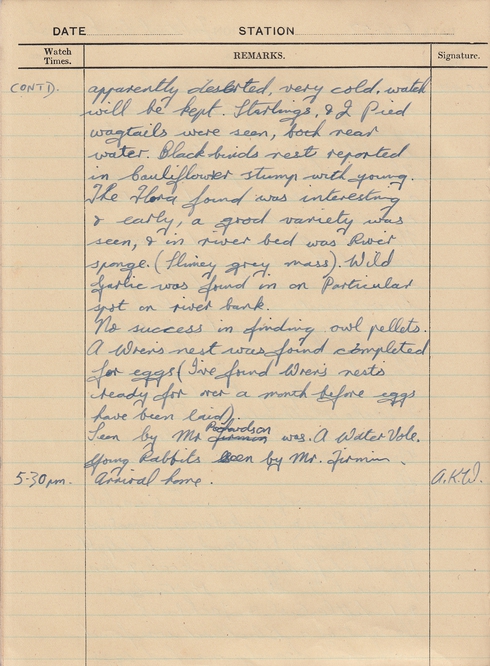 DATE STATION
Watch Times. REMARKS. Signature.
CONTD. apparently deserted, very cold, watch
will be kept. Starlings, & 2 Pied
wagtails were seen, both near
water. Blackbirds nest reported
in Cauliflower stump with young.
The Flora found was interesting
& early, a good variety was
seen, & in river bed was River
sponge. (Slimey grey mass). Wild
Garlic was found in on Particular
spot on river bank.
No success in finding owl pellets.
A Wren's nest was found completed
for eggs (I've found Wren's nests
ready for over a month before eggs
have been laid).
Seen by Mr Richardson Firmin was. A Water Vole.
Young Rabbits seen by Mr. Firmin.
5-30pm. Arrival home. A.K.W.